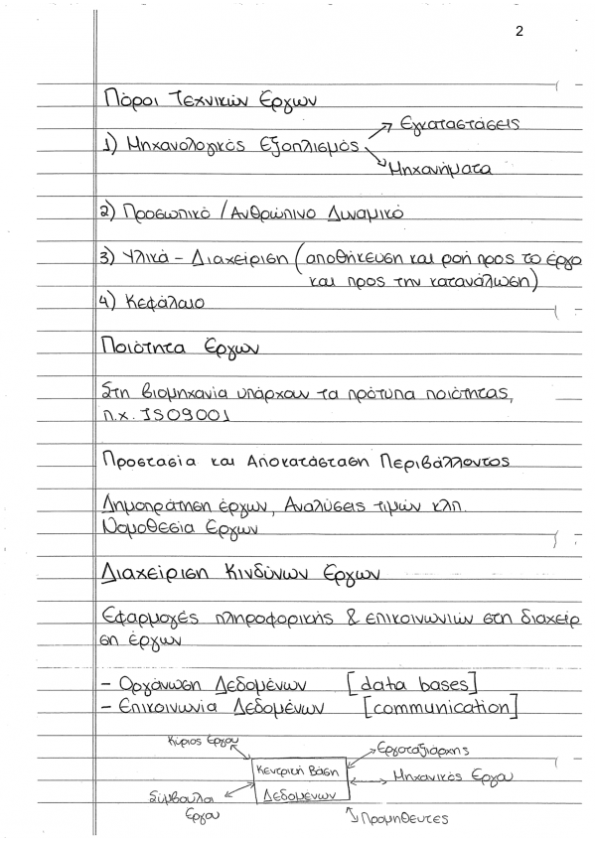 2
Πόροι Τεχνικών Έργων
Εγκαταστάσεις
1) Μηχανολογικός Εξοπλισμός
Μηχανήματα
2) Προσωπικό / Ανθρώπινο Δυναμικό
3) Υλικά - Διαχείριση (αποθήκευση και ροή προς το έργο
και προς την κατανάλωση)
4) Κεφάλαιο
Ποιότητα Έργων
Στη βιομηχανία υπάρχουν τα πρότυπα ποιότητας,
π.χ. ISO9001
Προστασία και Αποκατάσταση Περιβάλλοντος
Δημοπράτηση έργων, Αναλύσεις τιμών κλπ.
Νομοθεσία Έργων
Διαχείριση Κινδύνων Έργων
Εφαρμογές πληροφορικής & επικοινωνιών στη διαχείρ
ση έργων
- Οργάνωση Δεδομένων [data bases]
- Επικοινωνία Δεδομένων [communication]
Κύριος Έργου
Εργοταξιάρχης
Κεντρική Βάση
Δεδομένων
Μηχανικός Έργου
Σύμβουλοι
Έργου
Προμηθευτές